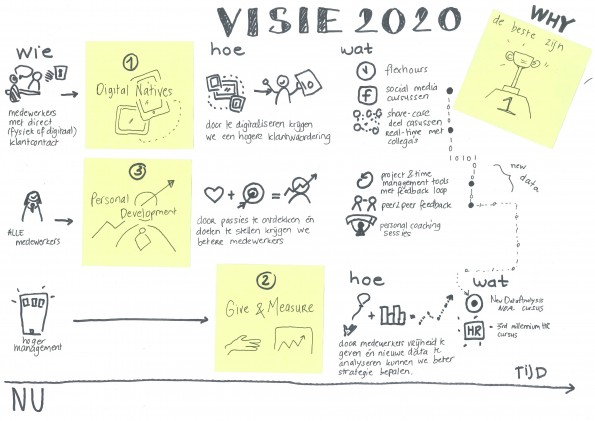 VISIE 2020
WHY
de beste zijn
1
wie
hoe
wat
1
Digital Natives
medewerkers
met direct
(fysiek of digitaal)
klantcontact
door te digitaliseren krijgen
we een hogere klantwaardering
flexhours
social media
cursussen
share-care
deel cursussen
real-time met
collega's
1010
new
data
3
Personal
Development
ALLE
medewerkers
door passies te ontdekken én
doelen te stellen krijgen we
betere medewerkers
project & time
management tools
met feedback loop
peer2peer feedback
personal coaching
sessies
2
Give & Measure
hoger
management
hoe
wat
door medewerkers vrijheid te
geven én nieuwe data te
analyseren kunnen we beter
strategie bepalen.
New Data Analysis
cursus
HR
3rd millennium HR
cursus
NU
TIJD